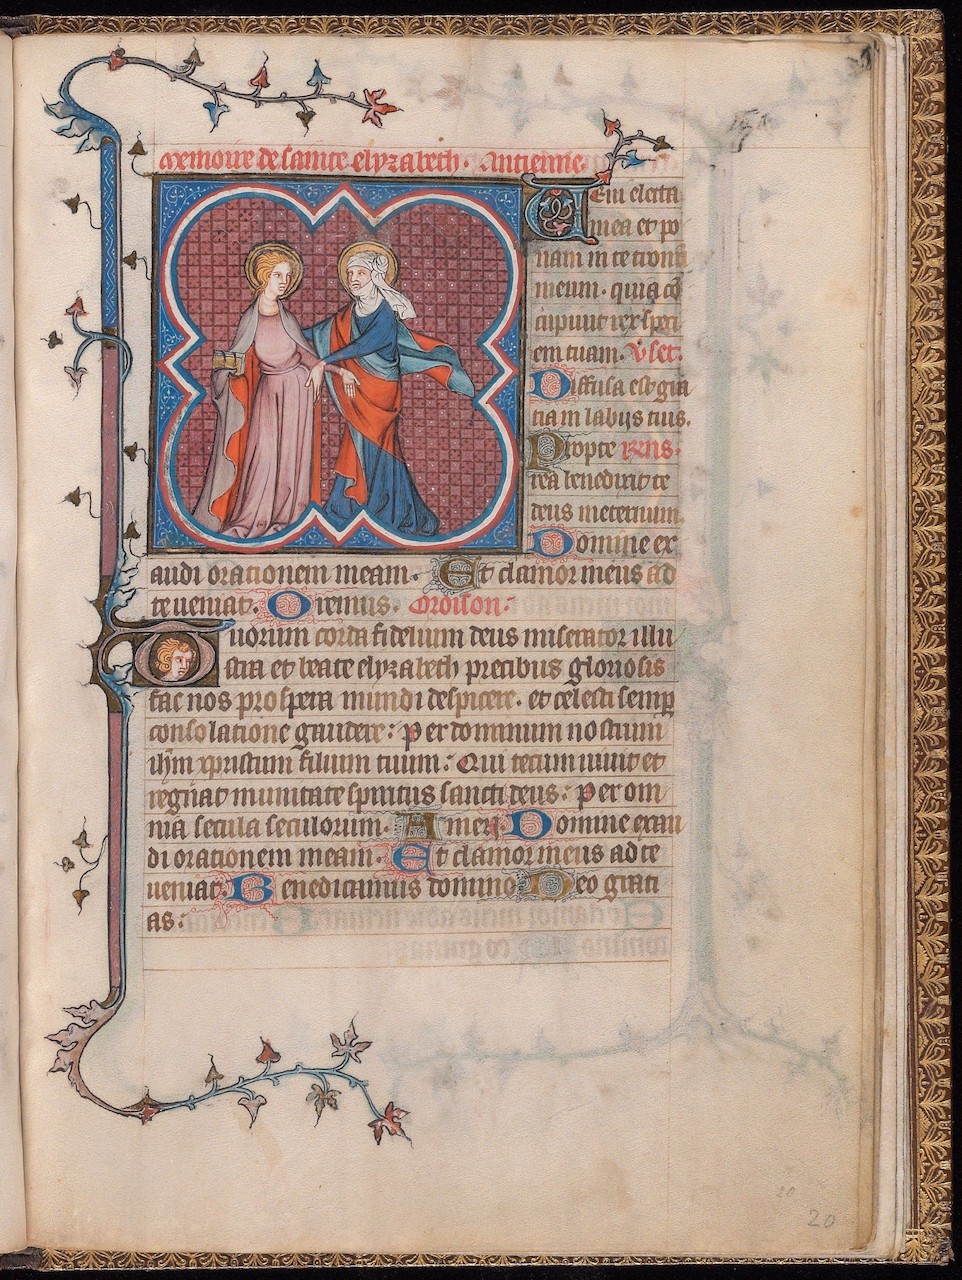 Memoire de sainte elyzabeth. Antienne.
Veni electa
mea et po
nam in te tronū
meum. quia cō
cupiuit rex speci
em tuam. v̓set.
Diffusa est gra
cia in labijs tuis.
Propte Rens.
rea benedixit te
deus ineternum.
Domine ex
audi orationem meam. Et clamor meus ad
te ueniat. Oremus. Oroison.
Quorum corda fidelium deus miserator illu
stra et beate elyzabeth precibus gloriosis
fac nos prospera mundi despicere. et celesti semꝑ
consolacione gaudere: per dominum nostrum
ihm xpristum filium tuum: Qui tecum uiuit et
regnat inunitate spiritus sancti deus: per om
nia secula seculorum. Amen. Domine exau
di orationem meam. Et clamor meus ad te
ueniat. Benedicamus domino Deo grati
as:
20
20